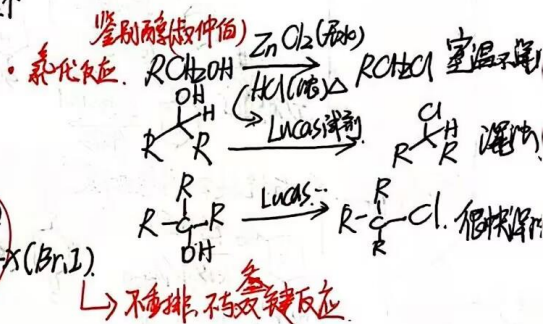 鉴别醇(叔仲伯)
·氯代反应. RCH2OH ZnCl2(无水) HCl(浓)△ RCH2Cl 室温不浑
OH H R R Lucas试剂 Cl H R R 浑浊
R R-C-R OH Lucas... R R-C-Cl. R 很快浑
X(Br.I).
↳不重排,不与双叁键反应